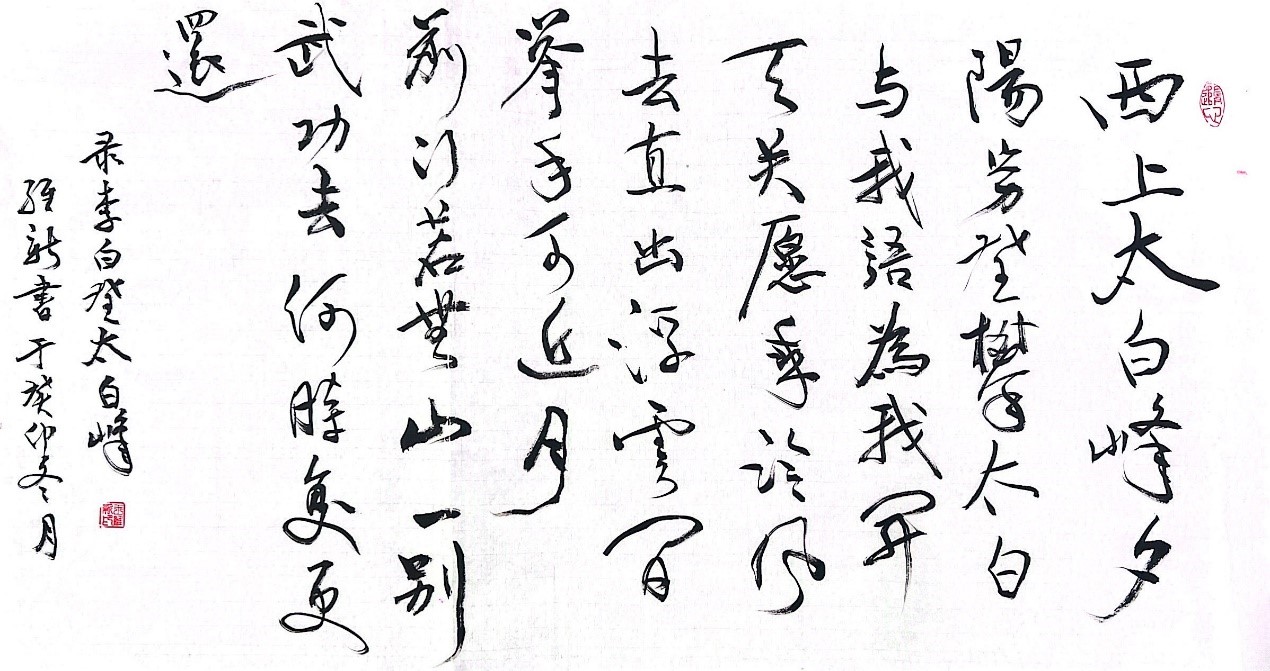 西上太白峰夕
陽穷登攀太白
与我語為我開
天关愿乘泠风
去直出浮雲间
举手可近月
前行若無山一别
武功去何時复更
還
录李白登太白峰
维新書于癸卯冬月